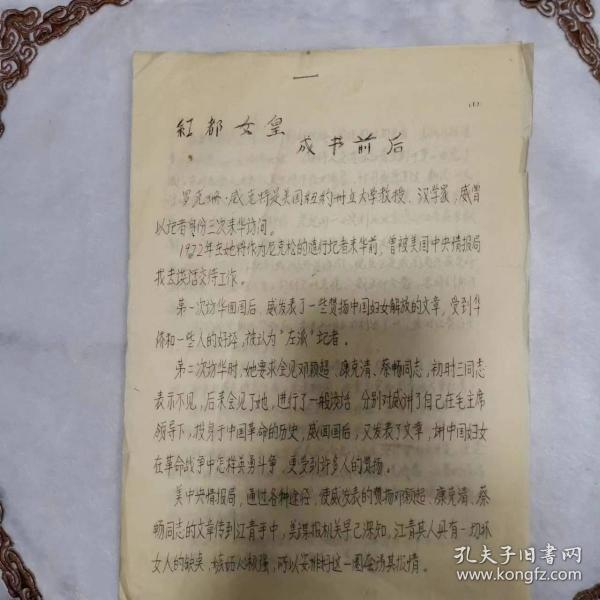 (1)
红都女皇
成书前后
罗克珊·威克特是美国纽约州立大学教授、汉学家,威曾
以记者身份三次来华访问。
1972年在她将作为尼克松的随行记者来华前,曾被美国中央情报局
找去谈话交待工作。
第一次访华回国后,威发表了一些赞扬中国妇女解放的文章,受到华
侨和一些人的好评,被认为“左派”记者。
第二次访华时,她要求会见邓颖超、康克清、蔡畅同志,初时三同志
表示不见,后来会见了她,进行了一般谈话,分别对威讲了自己在毛主席
领导下,投身于中国革命的历史,威回国后,又发表了文章,讲中国妇女
在革命战争中怎样英勇斗争,更受到许多人的赞扬。
美中央情报局,通过各种途径,使威发表的赞扬邓颖超、康克清、蔡
畅同志的文章传到江青手中,美谍报机关早已深知,江青其人具有一切坏
女人的缺点,嫉妒心极强,所以安排好这一圈套汤其报情。
孔夫子旧书网
www.kongfz.com